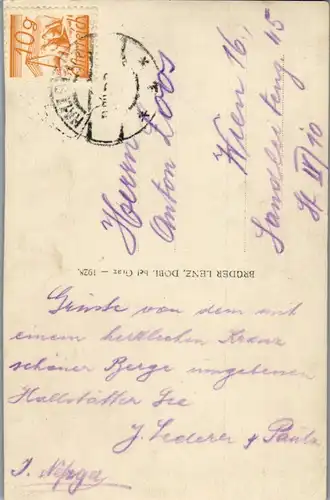 10g
Herrn
Anton Loos
Wien 16,
Sandleiteng. 45
St III/10
BRÜDER LENZ, DOBL bei Graz — 1928.
Grüße von dem mit
einem herrlichen Kranz
schöner Berge umgebenen
Hallstätter See
J. Lederer & Paula
J.